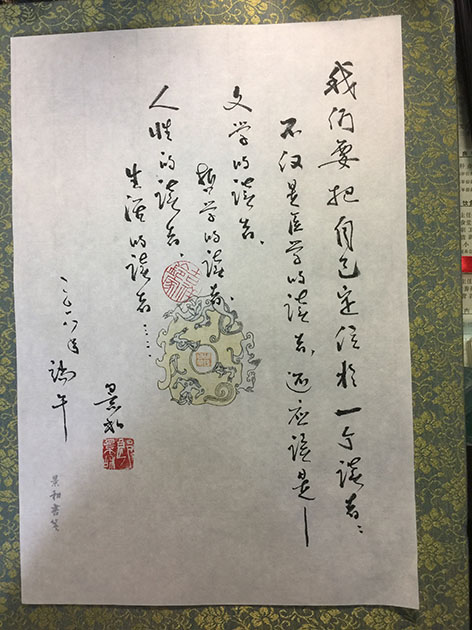 我们要把自己定位于一个读者：
不仅是医学的读者，还应该是—
文学的读者、
哲学的读者、
人性的读者、
生活的读者……
二〇一八年端午
景和
景和书笺